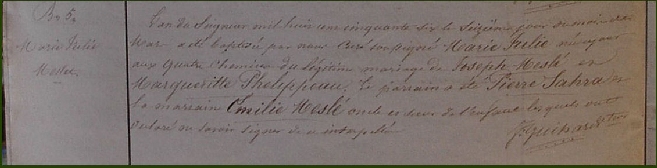 No 5.
Marie Julie
Meslée
L'an du Seigneur mil huit cent cinquante six le Seizième jour du mois de
Mar a été baptisée par nous Curé soussigné Marie Julie née
aux quatre Chemins du légitime mariage de Joseph Meslé et
Marguerite Phelippeau. Le parrain a été Pierre
la marraine Emilie Meslé oncle et sœur de l'enfant lesquels ont
déclaré ne savoir signer de ce interpelés